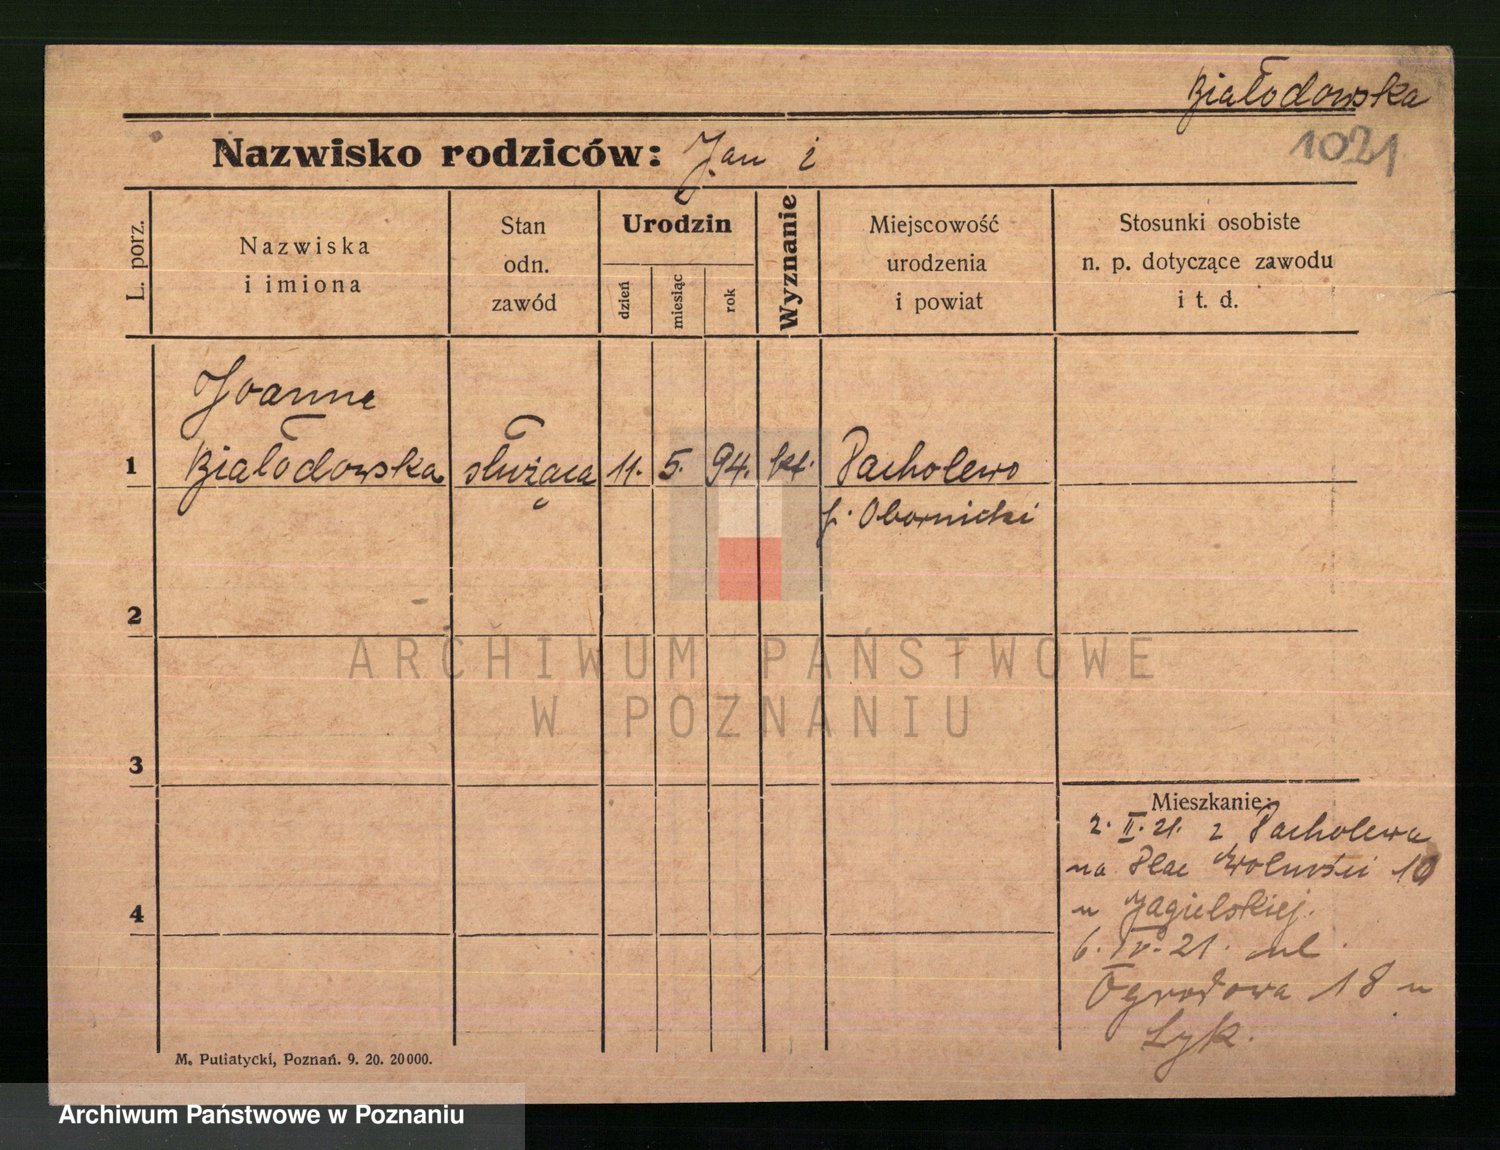 Białodowska
1021
Nazwisko rodziców: Jan i
L. porz.
Nazwiska
i imiona
Stan
odn.
zawód
Urodzin
dzień
miesiąc
rok
Wyznanie
Miejscowość
urodzenia
i powiat
Stosunki osobiste
n. p. dotyczące zawodu
i t. d.
Joanna
1 Białodowska służąca 11. 5. 94. kt. Pacholewo
p. Obornicki
2
3
4
Mieszkanie:
2. II. 21. z Pacholewa
na Plac Wolności 10
u Jagielskiej.
6. IV. 21. ul
Ogrodowa 18 u
Łyk.
M. Putiatycki, Poznań. 9. 20. 20000.
ARCHIWUM PAŃSTWOWE
W POZNANIU
Archiwum Państwowe w Poznaniu